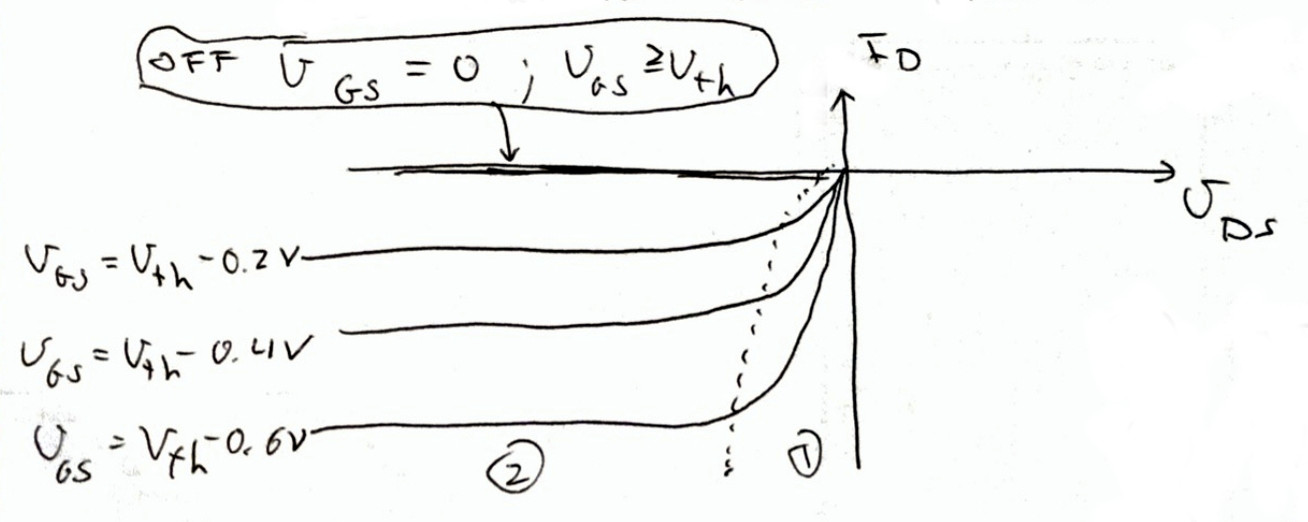 OFF V GS = 0 ; VGS ≥ Vth
ID
VDS
VGS = Vth - 0.2V
VGS = Vth - 0.4V
VGS = Vth - 0.6V
②
①